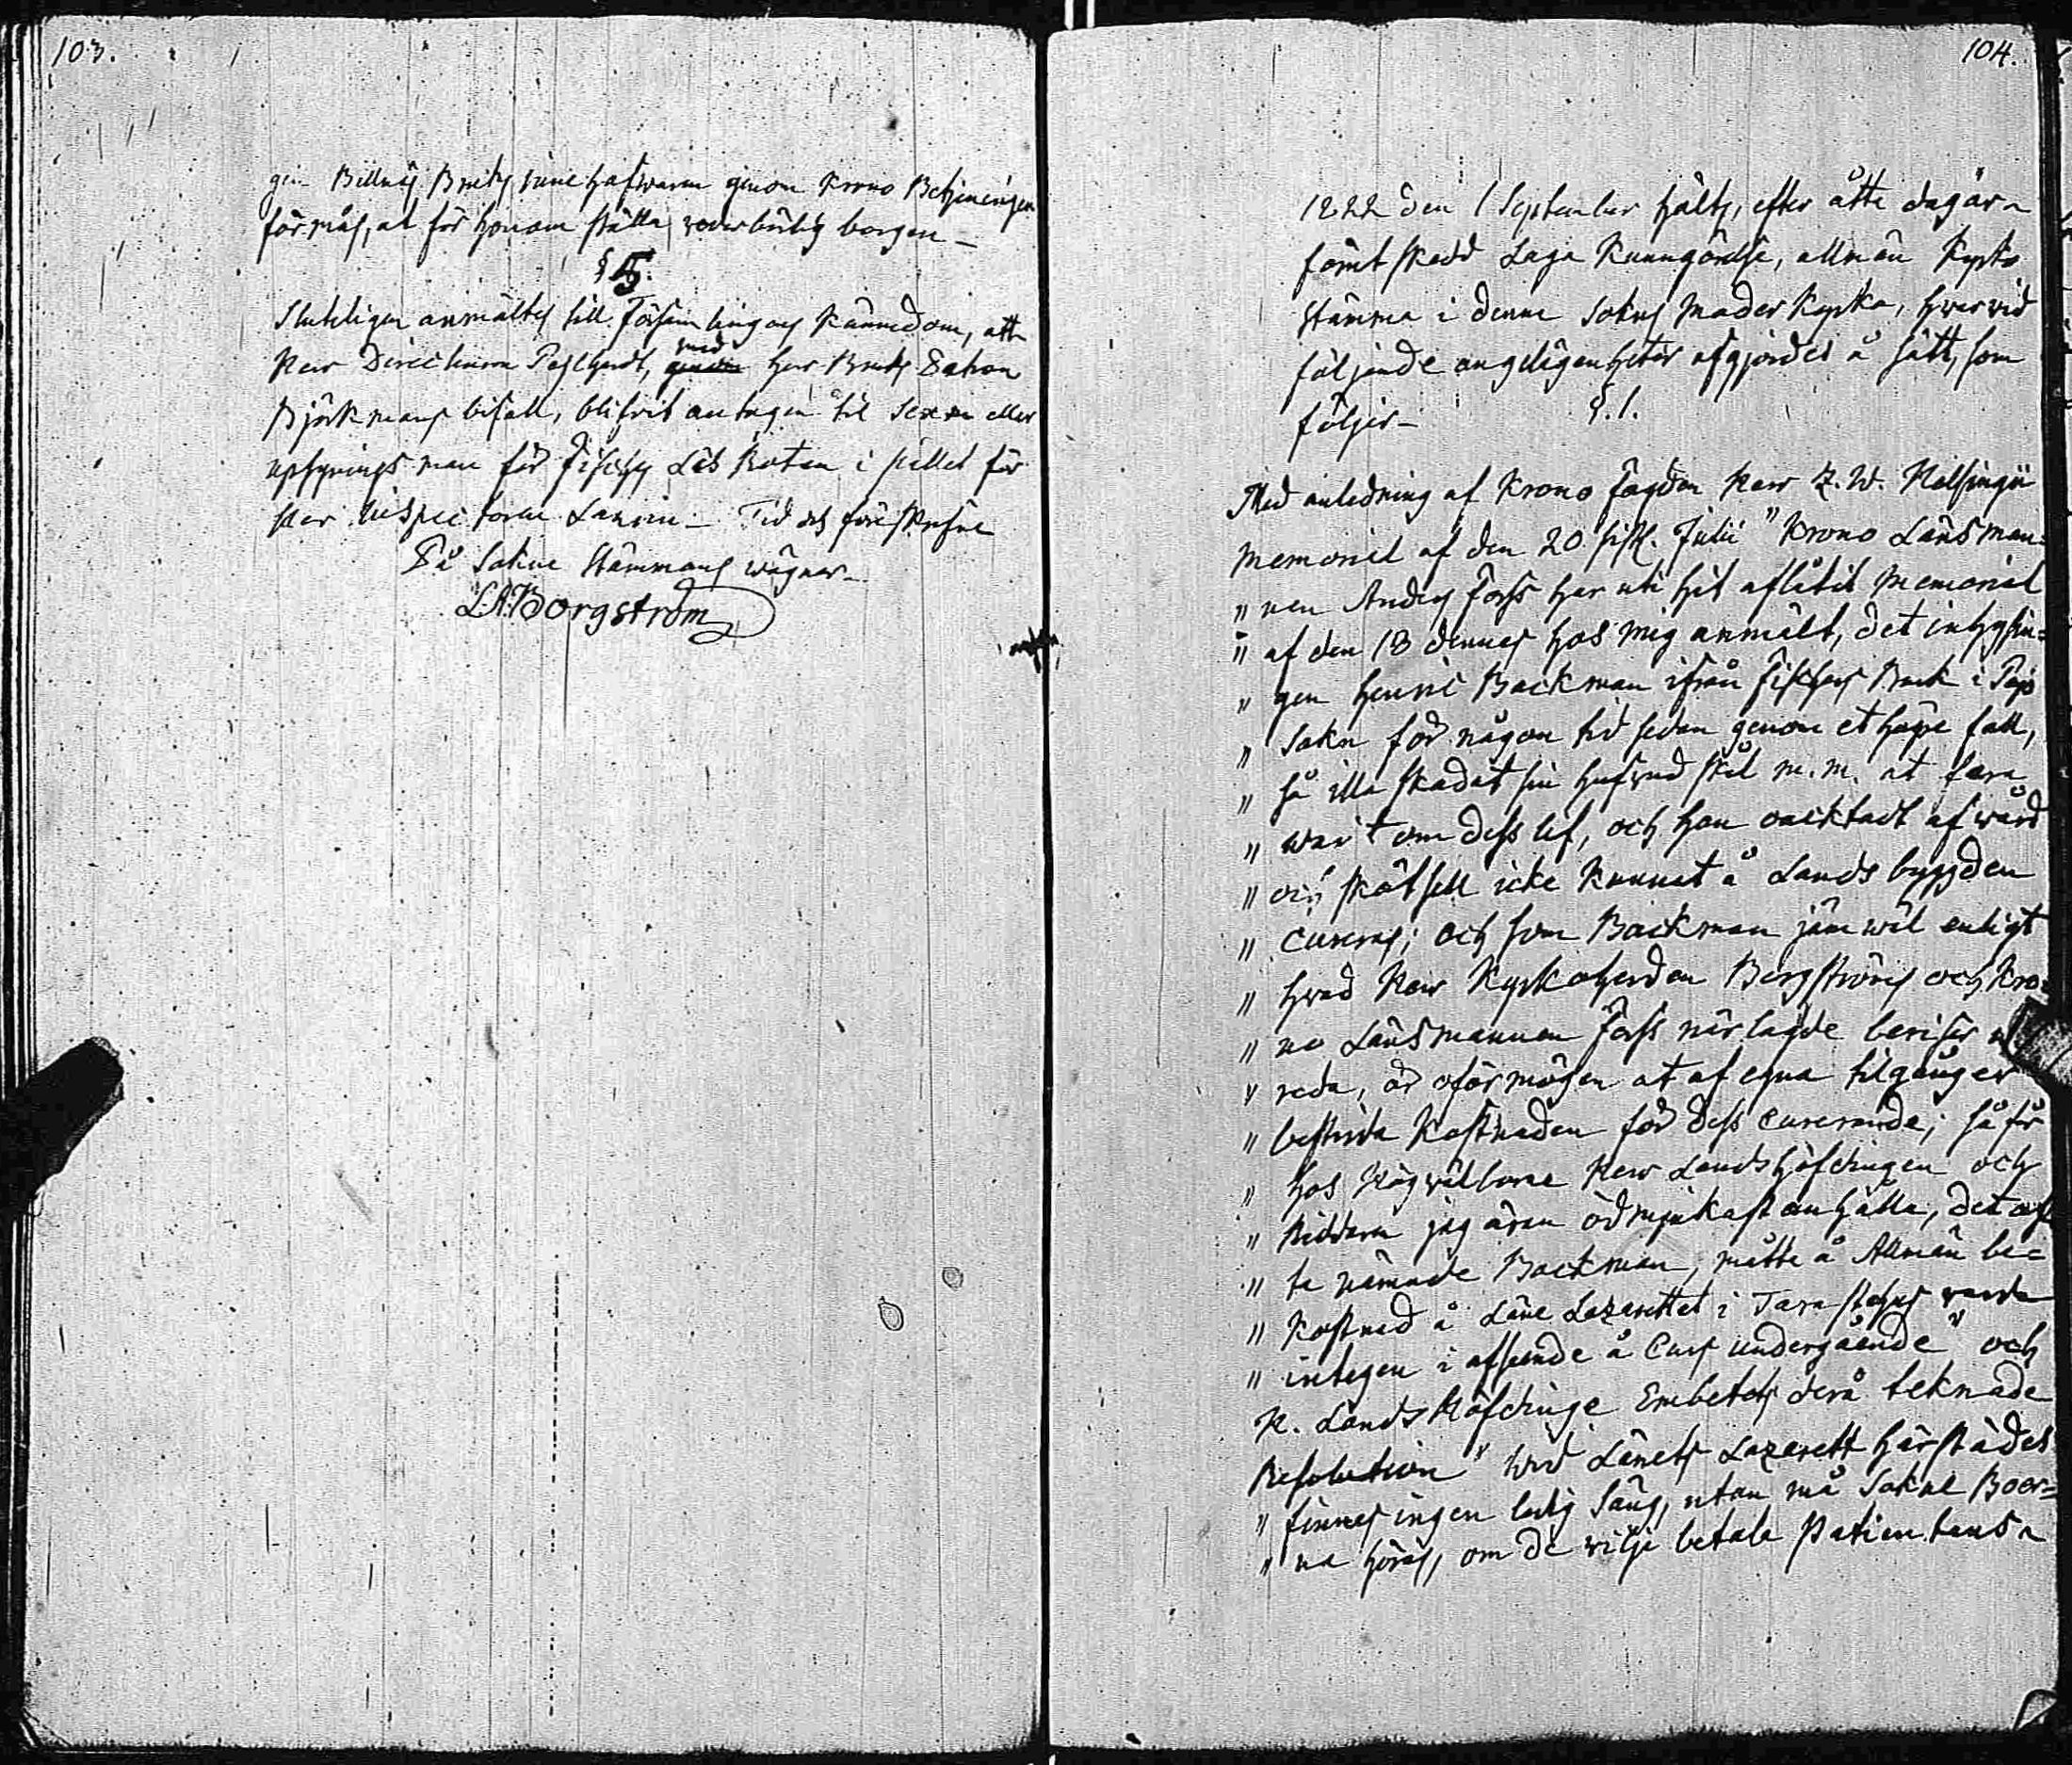 103.
gen Billnäs Bruks innehafwaren genom Krono Betjeningen
förmås, at för honom ställa wederbörlig borgen –
§ 5.
Sluteligen anmältes till Församlingens kännedom, att
Herr Directeuren med Herr Bruks Patron
Björkmans bifall, blifvit antagen til Sexman eller
upsyningsman för Fiskars Läs Rotan i stället för
Herr Inspectoren Tid och ort förskrefne
På Sokne Stämmans wägnar
L.A. Borgström
104.
1822 den 1 September hölts, efter åtta dagar
förut skedd Laga Kunngörelse, allmän Kyrko
stämma i denne Sokns Moder Kyrka, hwarvid
följande angelägenheter afgjordes å sätt, som
följer – §. 1.
Med anledning af Krono Fogden Herr Z. W.
Memorial af den 20 sistl. Julii "Krono Länsman=
" nen Anders Forss har uti hit aflåtit Memorial
" af den 18 dennes hos mig anmält, det inhysin=
" gen Henric Backman ifrån Fiskars Bruk i Pojo
" Sokn för någon tid sedan genom et häftigt fall,
" så illa skadat sin hufwud skål m.m. at fara
" warit om dess lif, och han oacktadt af wård
" och skötsell icke kunnat å Landsbyggden
" cureras; och som Backman jämwäl enligt
" hwad Herr Kyrkoherden Borgströms och Kro=
" no Länsmannen Forss närlagde beviser
" reda, är oförmögen at af egna tilgånger
" bestrida Kostnaden för dess curerande; så får
" hos Högvälborne Herr Landshöfdingen och
" Riddaren jag äran ödmjukast anhålla, det of
" ta nämnde Backman, måtte å Allmän be=
" kostnad å Läne Lazarettet i Tavastehus warda
" intagen i afseende å Curs undergående" och
K. Lands Höfdinge Embetets derå teknade
Resolution " Wid Länets Lazarett härstädes
" finnes ingen ledig Säng, utan må Sokne Boer=
" na höras, om de wilja betala Patientens